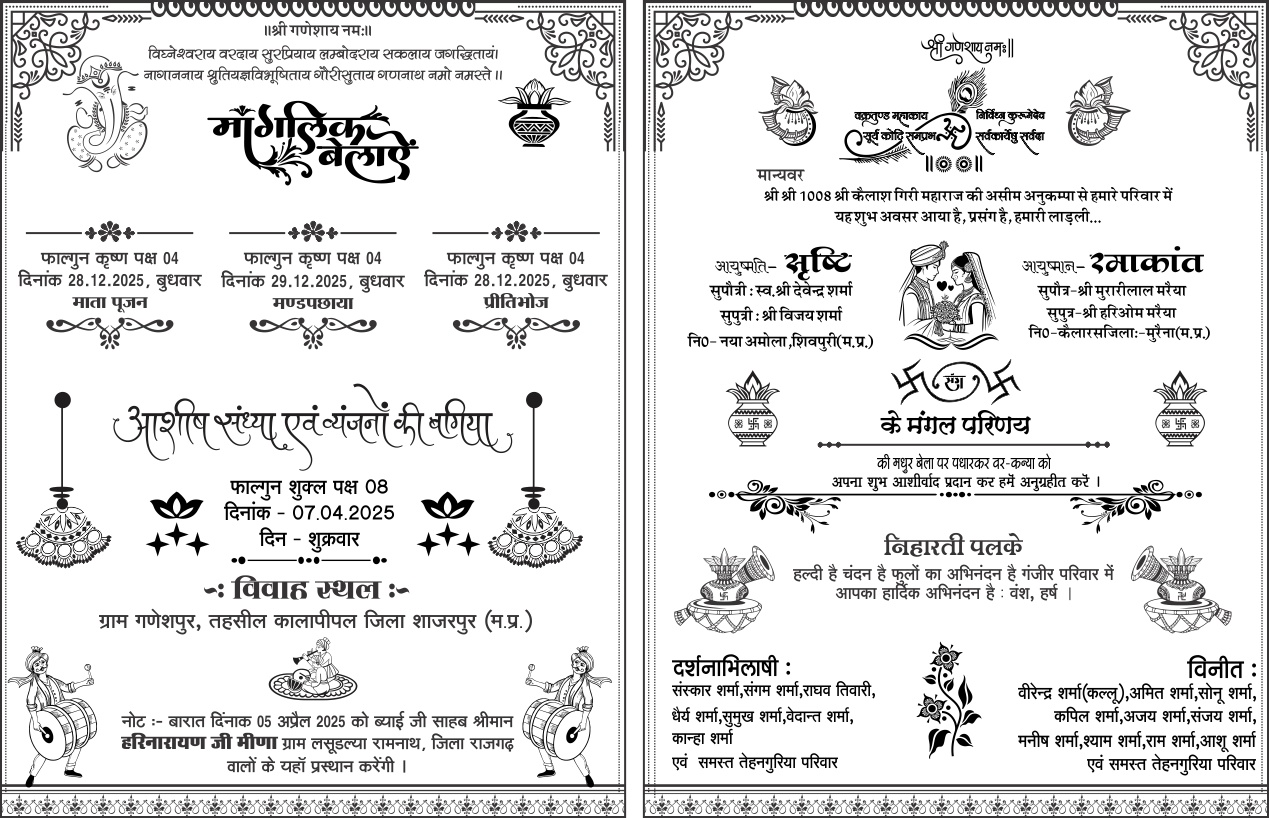 ॥श्री गणेशाय नमः॥
विघ्नेश्वराय वरदाय सुरप्रियाय लम्बोदराय सकलाय जगद्धितायं।
नागाननाय श्रुतियज्ञविभूषिताय गौरीसुताय गणनाथ नमो नमस्ते॥
माँगलिक
बेलाऐं
फाल्गुन कृष्ण पक्ष 04
दिनांक 28.12.2025, बुधवार
माता पूजन
फाल्गुन कृष्ण पक्ष 04
दिनांक 29.12.2025, बुधवार
मण्डपछाया
फाल्गुन कृष्ण पक्ष 04
दिनांक 28.12.2025, बुधवार
प्रीतिभोज
आशीष संध्या एवं व्यंजनों की बगिया
फाल्गुन शुक्ल पक्ष 08
दिनांक - 07.04.2025
दिन - शुक्रवार
-: विवाह स्थल :-
ग्राम गणेशपुर, तहसील कालापीपल जिला शाजरपुर (म.प्र.)
नोट :- बारात दिंनाक 05 अप्रैल 2025 को ब्याई जी साहब श्रीमान
हरिनारायण जी मीणा ग्राम लसूडल्या रामनाथ, जिला राजगढ़
वालों के यहॉ प्रस्थान करेंगी ।
श्री गणेशाय नमः॥
वक्रतुण्ड महाकाय निर्विघ्नं कुरूमेदेव
सूर्य कोटि समप्रभः सर्वकार्येषु सर्वदा
मान्यवर
श्री श्री 1008 श्री कैलाश गिरी महाराज की असीम अनुकम्पा से हमारे परिवार में
यह शुभ अवसर आया है, प्रसंग है, हमारी लाड़ली...
आयुष्मति- सृष्टि
सुपौत्री : स्व.श्री देवेन्द्र शर्मा
सुपुत्री : श्री विजय शर्मा
नि0- नया अमोला ,शिवपुरी(म.प्र.)
आयुष्मान- रमाकांत
सुपौत्र-श्री मुरारीलाल मरैया
सुपुत्र-श्री हरिओम मरैया
नि0-कैलारसजिला:-मुरैना(म.प्र.)
संग
के मंगल परिणय
की मधुर बेला पर पधारकर वर-कन्या को
अपना शुभ आशीर्वाद प्रदान कर हमें अनुग्रहीत करें ।
निहारती पलके
हल्दी है चंदन है फुलों का अभिनंदन है गंजीर परिवार में
आपका हार्दिक अभिनंदन है : वंश, हर्ष ।
दर्शनाभिलाषी :
संस्कार शर्मा,संगम शर्मा,राघव तिवारी,
धैर्य शर्मा,सुमुख शर्मा,वेदान्त शर्मा,
कान्हा शर्मा
एवं समस्त तेहनगुरिया परिवार
विनीत :
वीरेन्द्र शर्मा(कल्लू),अमित शर्मा,सोनू शर्मा,
कपिल शर्मा,अजय शर्मा,संजय शर्मा,
मनीष शर्मा,श्याम शर्मा,राम शर्मा,आशू शर्मा
एवं समस्त तेहनगुरिया परिवार